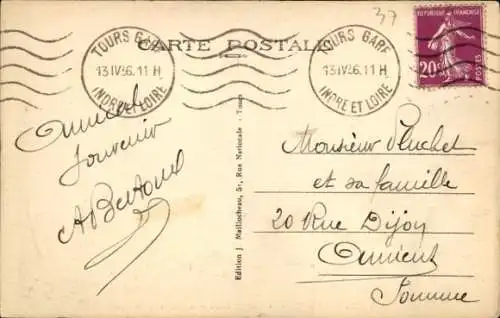 37
CARTE POSTALE
TOURS GARE
13 IV 36. 11 H
INDRE ET LOIRE
TOURS GARE
13 IV 36. 11 H
INDRE ET LOIRE
REPUBLIQUE FRANÇAISE
20c
POSTES
Amical
Souvenir
A Bertous
Edition J. Maillocheau, 51, Rue Nationale - Tours
Monsieur Pluchet
et sa famille
20 Rue Dijon
Amiens
Somme